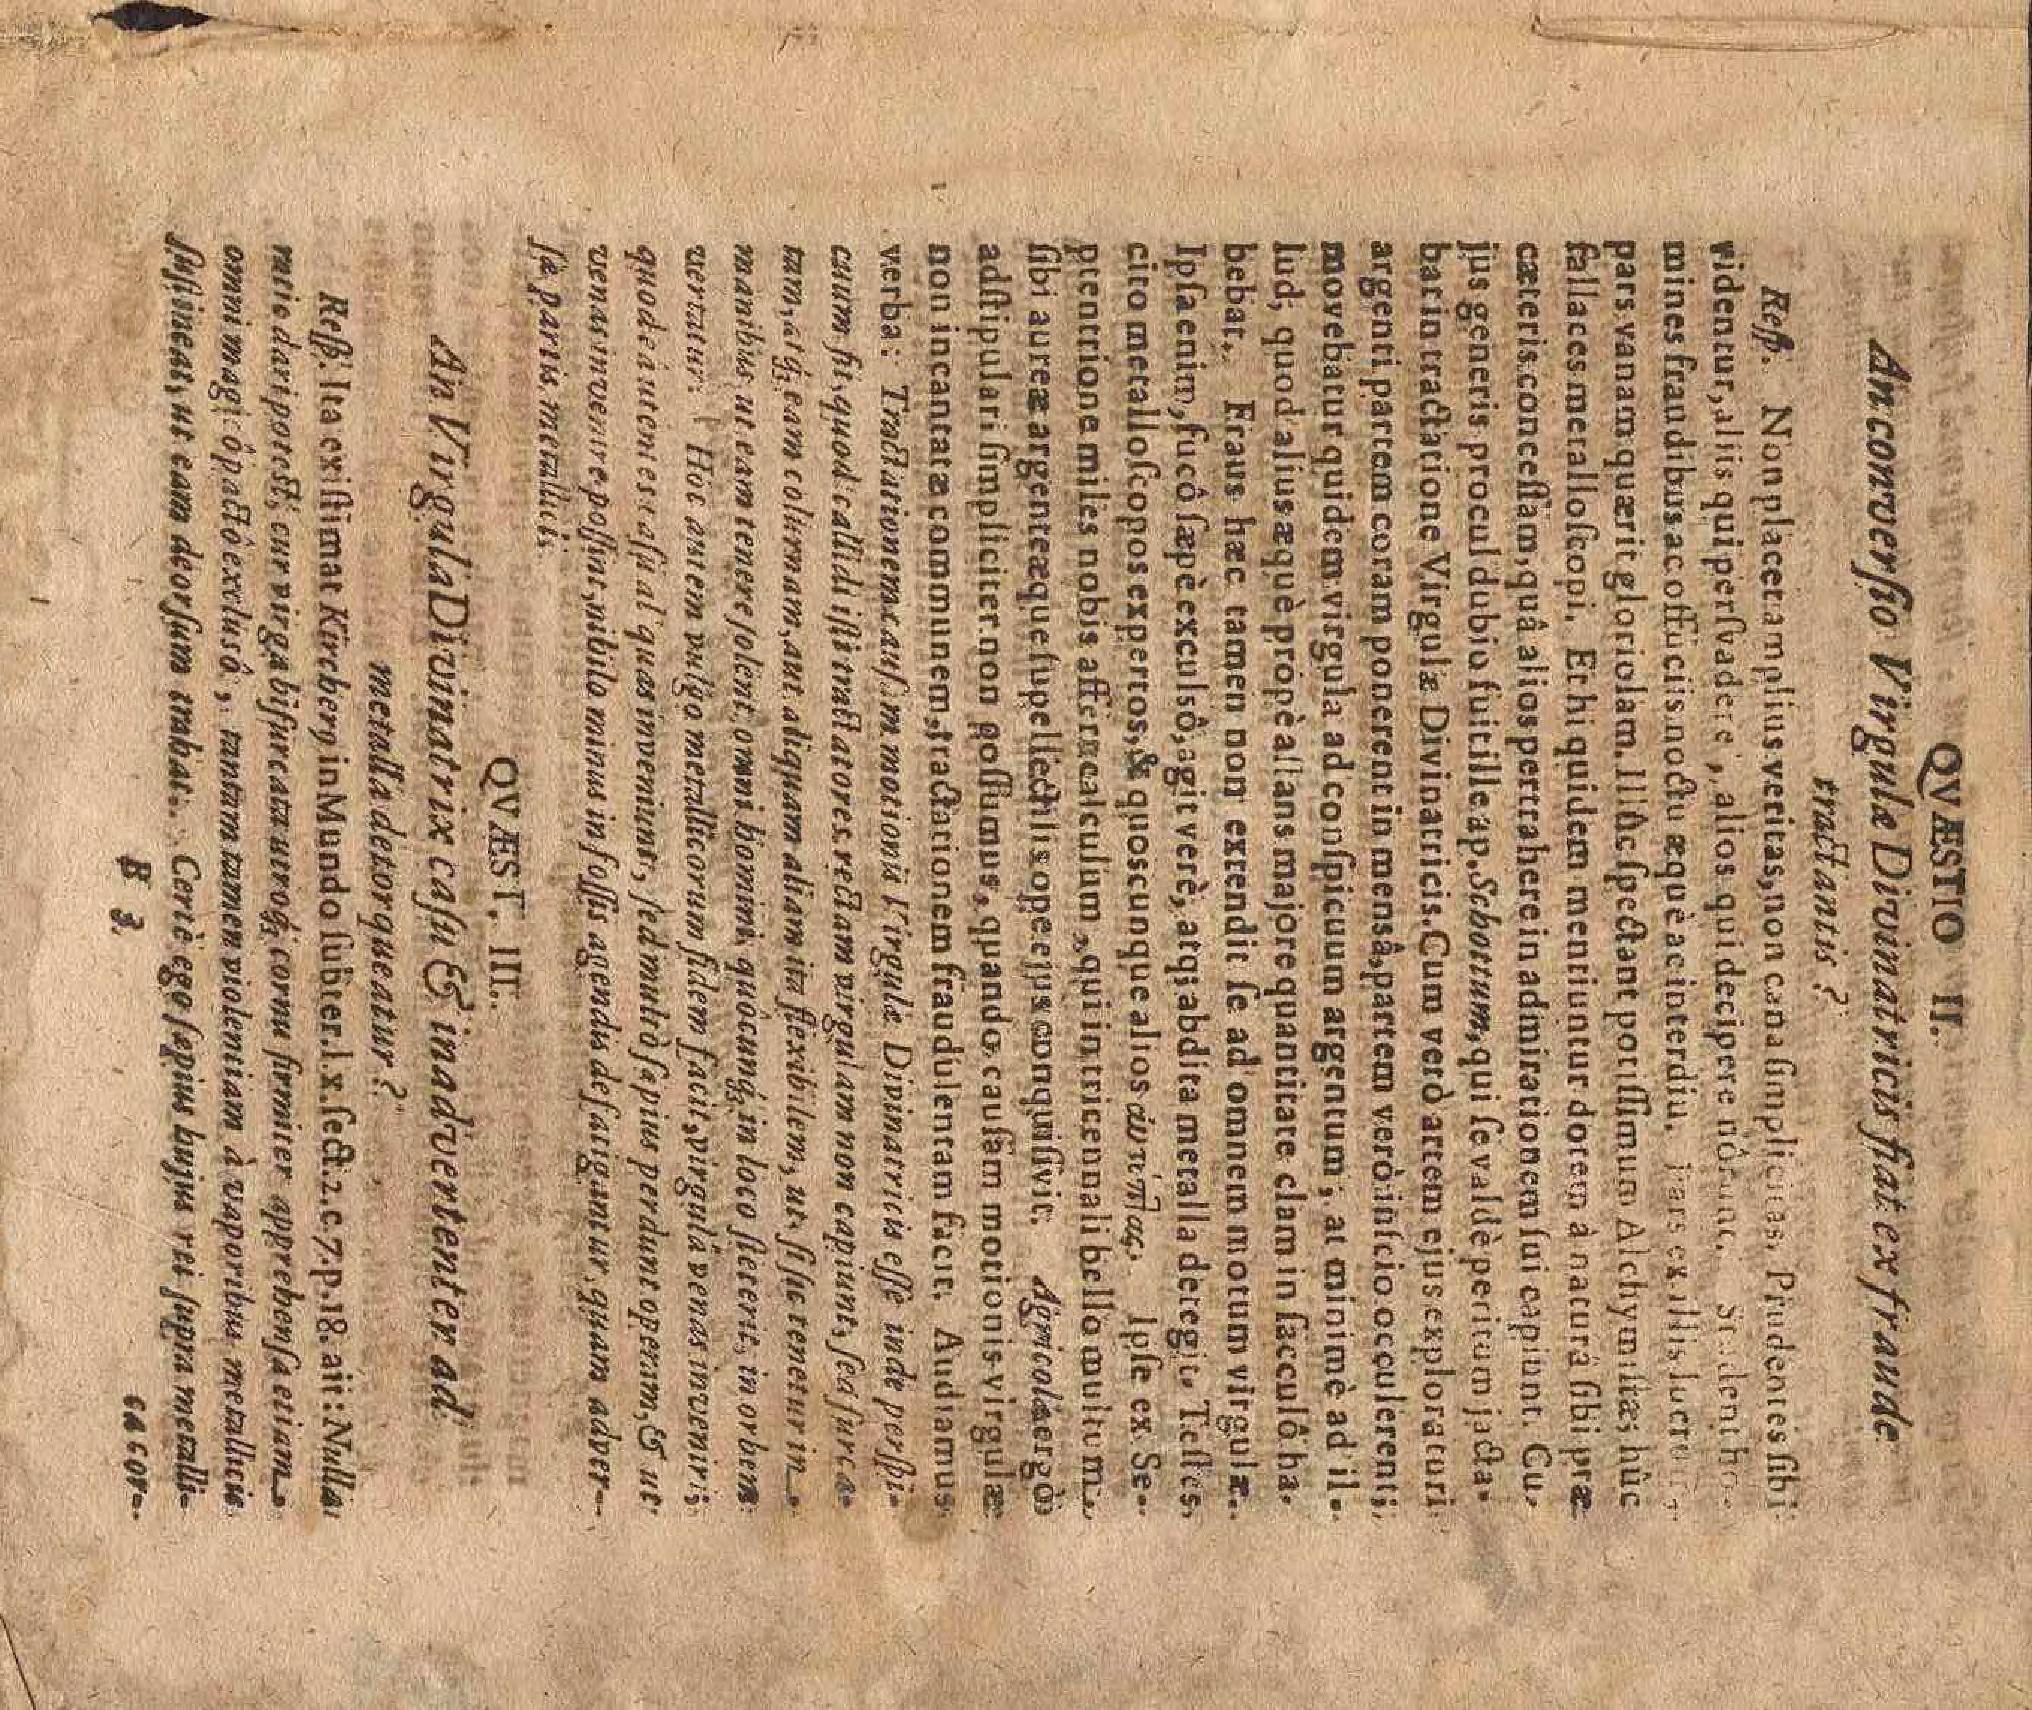 QVÆSTIO II.
An conversio Virgulæ Divinatricis fiat ex fraude
tractantis?
Reſp. Non placet amplius veritas, non cana ſimplicitas, Prudentes ſibi
videntur, aliis qui perſvadere, alios qui decipere nôrunt. Student ho-
mines fraudibus ac offuciis noctu æquè ac interdiu. Pars ex illis lucrum,
pars vanam quærit gloriolam. Illûc ſpectant potiſſimum Alchymiſtæ; hûc
fallaces metalloſcopi. Et hi quidem mentiuntur dotem à naturâ ſibi præ
cæteris conceſſam, quâ alios pertrahere in admirationem ſui capiunt. Cu-
jus generis procul dubio fuit ille ap. Schottum, qui ſe valdè peritum jacta-
bat in tractatione Virgulæ Divinatricis. Cum verò artem ejus exploraturi
argenti partem coram ponerent in mensâ, partem verò inſcio occulerent;
movebatur quidem virgula ad conſpicuum argentum, at minimè ad il-
lud, quod alius æquè propè aſtans majore quantitate clam in ſacculô ha-
bebat. Fraus hæc tamen non extendit ſe ad omnem motum virgulæ.
Ipſa enim, fucô ſæpè exculsô, agit verè, atq; abdita metalla detegit. Teſtes
cito metalloſcopos expertos, & quoscunque alios ἀυτόπτας. Ipſe ex Se-
ptentrione miles nobis affert calculum, qui in tricennali bello multum
ſibi aureæ argenteæque ſupellectilis ope ejus conquiſivit. Agricolæ ergò
adſtipulari ſimpliciter non poſſumus, quando cauſam motionis virgulæ
non incantatæ communem, tractationem fraudulentam facit. Audiamus
verba: Tractationem cauſam motionis Virgulæ Divinatricis eſſe inde perſpi-
cuum fit, quod callidi iſti tractatores rectam virgulam non capiunt, ſed furca-
tam, atq; eam colurnam, aut aliquam aliam ita flexibilem, ut, ſi ſic tenetur in
manibus ut eam tenere ſolent, omni homini, quôcunq; in loco ſteterit, in orbem
vertatur: Hoc autem vulgo metallicorum fidem facit, virgulâ venas inveniri,
quod eâ utentes caſu aliquas inveniunt, ſed multò ſæpius perdunt operam, & ut
venas invenire poſſint, nihilo minus in foſſis agendis defatigantur, quam adver-
ſæ partis metallici.
QVÆST. III.
An Virgula Divinatrix caſu & inadvertenter ad
metalla detorqueatur?
Reſp. Ita exiſtimat Kircherg in Mundo ſubter. l. x. ſect. 2. c. 7. p. 18. ait: Nulla
ratio dari poteſt, cur virga bifurcata utroq; cornu firmiter apprehenſa etiam
omni magicô pactô excluſô, tantam tamen violentiam à vaporibus metallicis
ſuſtineat, ut eam deorſum trahat. Certè ego ſæpius hujus rei ſupra metalli-
B 3
cacor-